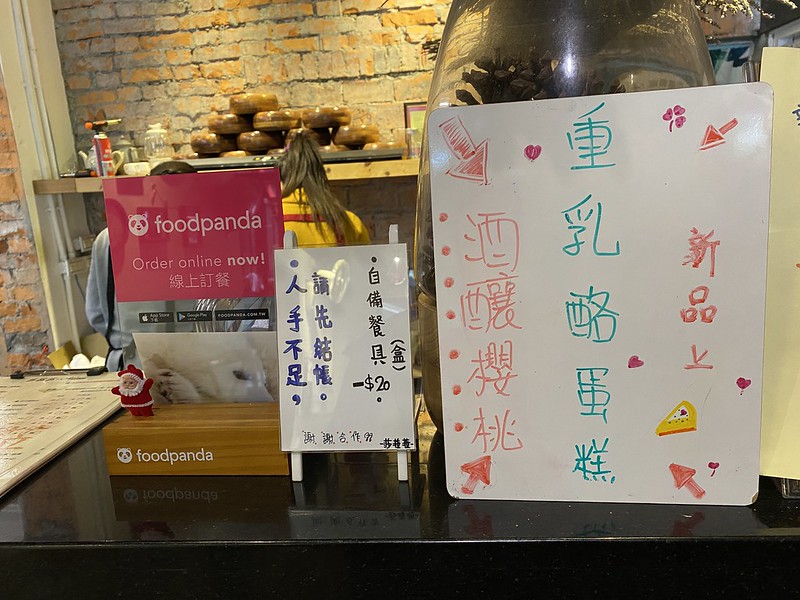 foodpanda
Order online now!
線上訂餐
App Store
Google Play
FOODPANDA.COM.TW
foodpanda
自備餐具(盒)
-$20。
請先結帳。
人手不足，
謝謝合作
新品上
重乳酪蛋糕
酒釀櫻桃